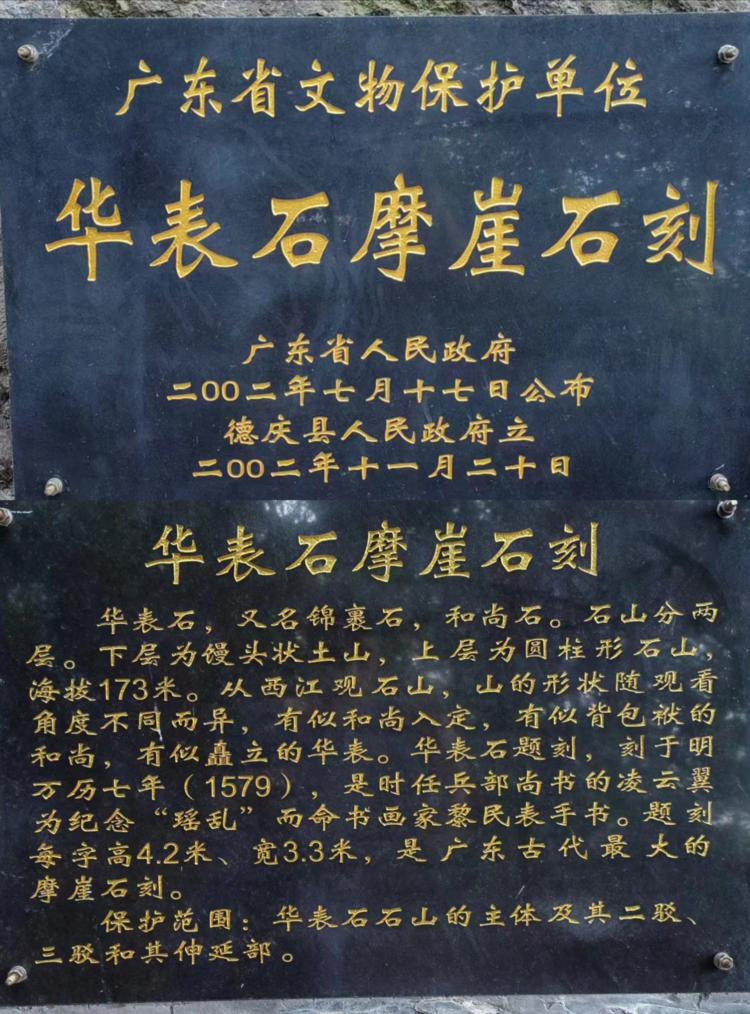 广东省文物保护单位
华表石摩崖石刻
广东省人民政府
二00二年七月十七日公布
德庆县人民政府立
二00二年十一月二十日
华表石摩崖石刻
华表石，又名锦裹石，和尚石。石山分两
层。下层为馒头状土山，上层为圆柱形石山，
海拔173米。从西江观石山，山的形状随观看
角度不同而异，有似和尚入定，有似背包袱的
和尚，有似矗立的华表。华表石题刻，刻于明
万历七年（1579），是时任兵部尚书的凌云翼
为纪念“瑶乱”而命书画家黎民表手书。题刻
每字高4.2米、宽3.3米，是广东古代最大的
摩崖石刻。
保护范围：华表石石山的主体及其二驳、
三驳和其伸延部。